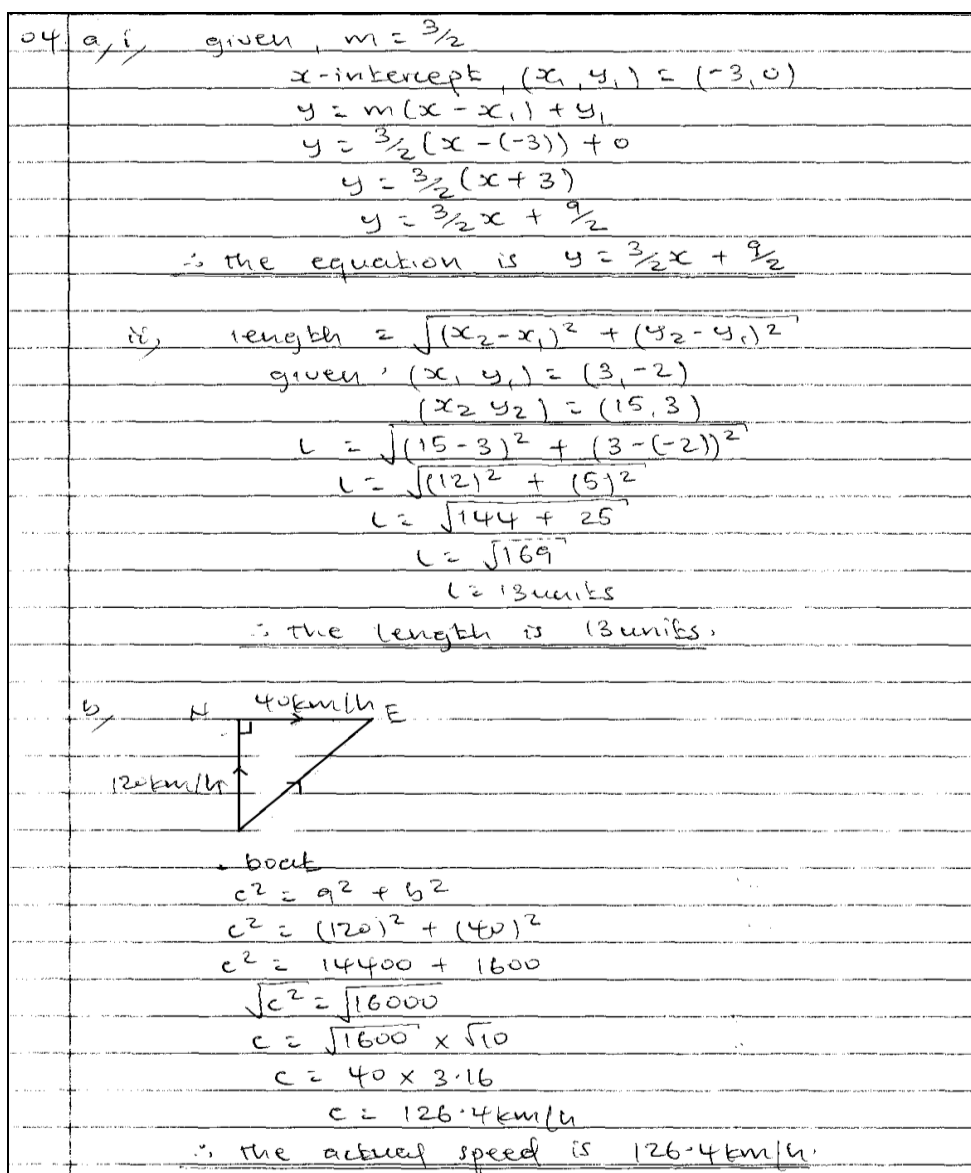 04 a, i, given, m = 3/2
x-intercept, (x₁, y₁) = (-3, 0)
y = m(x - x₁) + y₁
y = 3/2(x - (-3)) + 0
y = 3/2(x + 3)
y = 3/2x + 9/2
∴ the equation is y = 3/2x + 9/2
ii, length = √((x₂-x₁)² + (y₂-y₁)²)
given, (x₁ y₁) = (3, -2)
(x₂ y₂) = (15, 3)
L = √((15-3)² + (3-(-2))²)
L = √((12)² + (5)²)
L = √(144 + 25)
L = √169
L = 13 units
∴ the length is 13 units.
b, N 40km/h E
120km/h
boat
c² = a² + b²
c² = (120)² + (40)²
c² = 14400 + 1600
√c² = √16000
c = √1600 × √10
c = 40 × 3.16
c = 126.4 km/h
∴ the actual speed is 126.4 km/h.